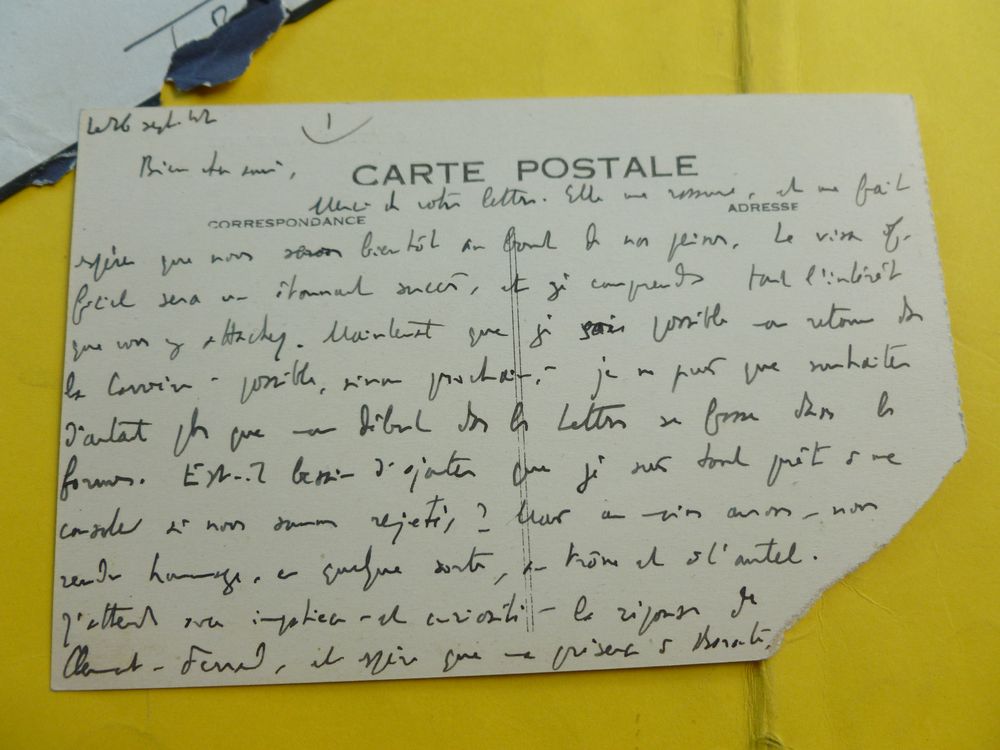 Le 26 sept. 42
1
Bien cher ami,
CARTE POSTALE
Merci de votre lettre. Elle me rassure, et me fait
CORRESPONDANCE
ADRESSE
espérer que nous serons bientôt au bout de nos peines. Le visa of-
ficiel sera un étonnant succès, et je comprends tout l'intérêt
que vous y attachez. Maintenant que je sais possible un retour de
la - possible, sinon prochain, - je ne puis que souhaiter
d'autant plus que mon début dans les Lettres se fasse dans les
formes. Est-il besoin d'ajouter que je suis tout prêt à me
consoler si nous sommes rejetés ? Mais au moins aurons-nous
rendu hommage, en quelque sorte, au trône et à l'autel.
J'attends avec impatience - et curiosité - la réponse de
Clermont-Ferrand, et espère que ma présence à